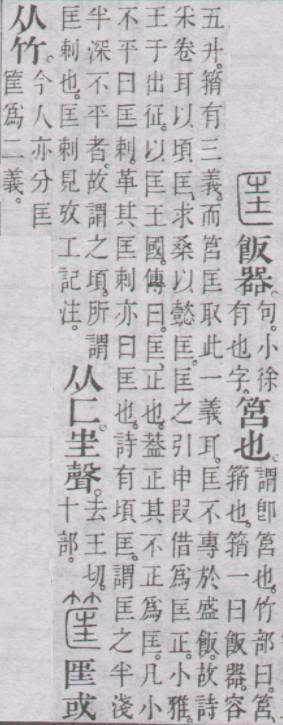 匡 飯器。句。小徐有也字。筥也。謂卽筥也。竹部曰。筥、䈰也。䈰一曰飯器。容
五升。䈰有三義。而筥匡取此一義耳。匡不專於盛飯。故詩
采卷耳以頃匡。求桑以懿匡。匡之引申叚借爲匡正。小雅。
王于出征。以匡王國。傳曰。匡、正也。蓋正其不正爲匡。凡小
不平曰匡剌。革其匡剌亦曰匡也。詩有頃匡。謂匡之半淺
半深不平者。故謂之頃。所謂
匡剌也。匡剌見攷工記注。从匚㞷聲。去王切。十部。筐 匡或
从竹。今人亦分匡筐爲二義。